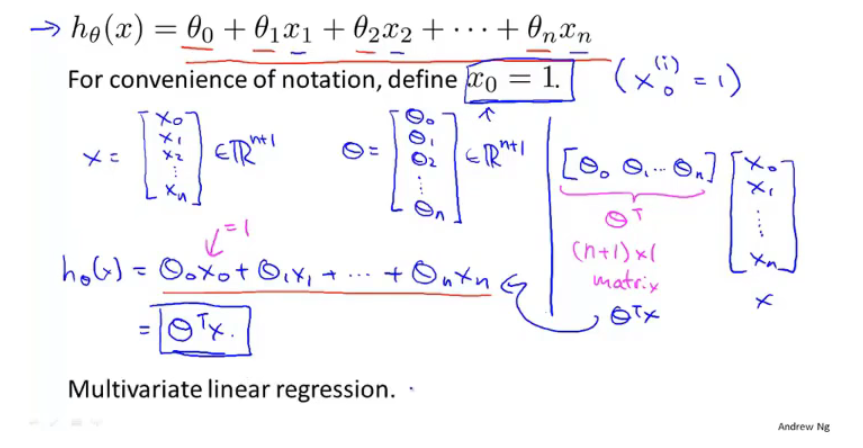 → hθ(x) = θ₀ + θ₁x₁ + θ₂x₂ + ··· + θₙxₙ
For convenience of notation, define x₀ = 1. (x₀⁽ⁱ⁾ = 1)
x = [x₀ x₁ x₂ ⋮ xₙ] ∈ ℝⁿ⁺¹ θ = [θ₀ θ₁ θ₂ ⋮ θₙ] ∈ ℝⁿ⁺¹ [θ₀ θ₁ ··· θₙ] [x₀ x₁ ⋮ xₙ]
θᵀ
(n+1) x 1
matrix
x
= 1
hθ(x) = θ₀x₀ + θ₁x₁ + ··· + θₙxₙ
θᵀx
= θᵀx.
Multivariate linear regression.
Andrew Ng